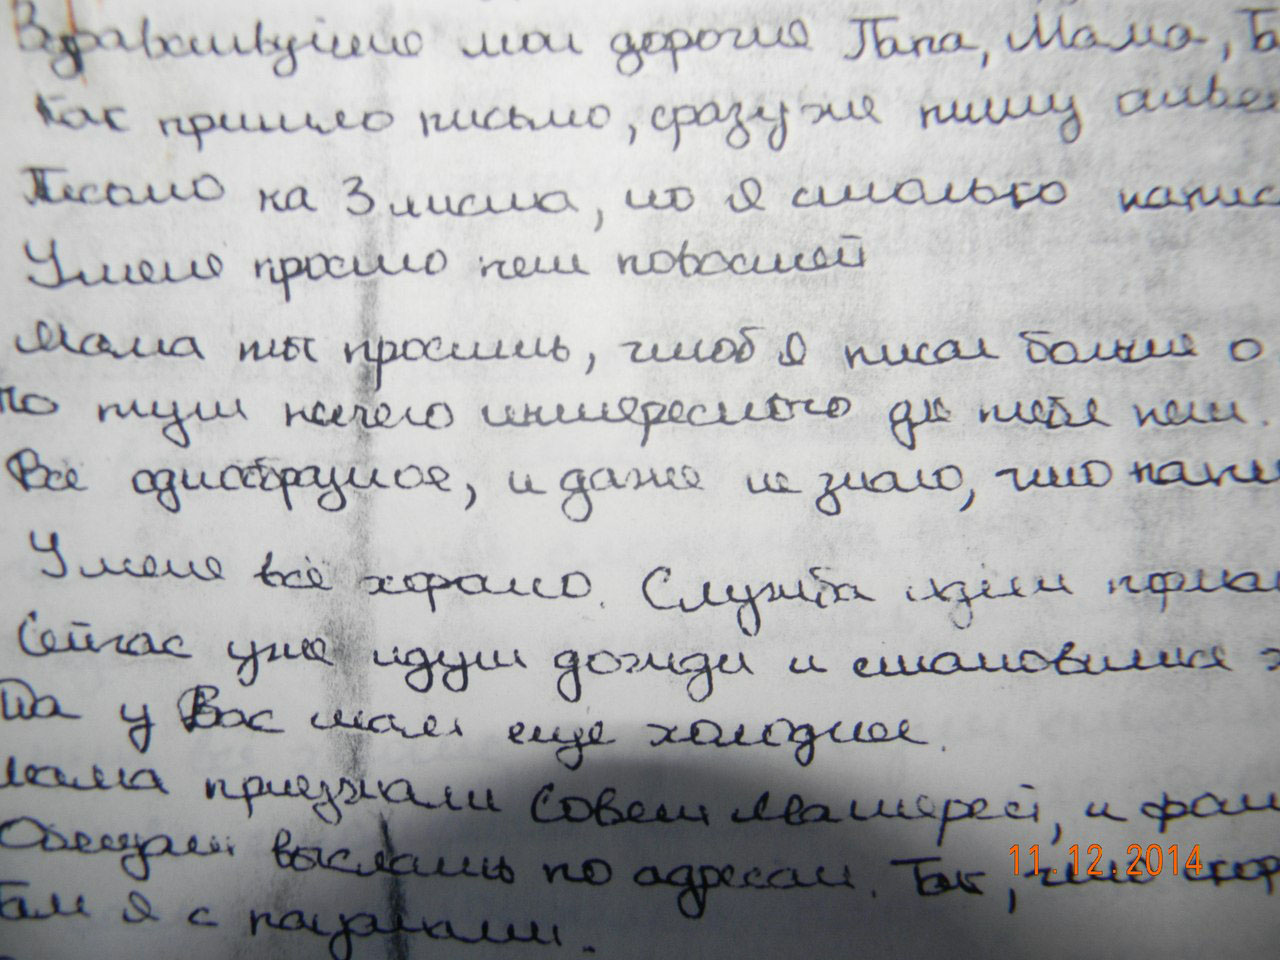 Здравствуйте мои дорогие Папа, Мама,
Как пришло письмо, сразу же пишу ответ
Письмо на 3 листа, но я столько напис
У меня просто нет новостей
Мама ты просишь, чтоб я писал больше о
но тут нечего интересного для тебя нет.
Всё однообразное, и даже не знаю, что напи
У меня всё хорошо. Служба идет норма
Сейчас уже идут дожди и становится
Да у Вас там еще холоднее.
Мама приезжали Совет Матерей, и фот
Обещали выслать по адресам. Так, что скор
Там я с пацанами.
11.12.2014